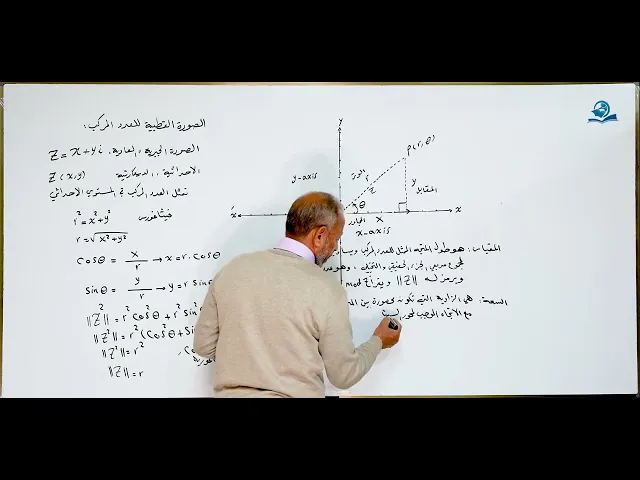 الصورة القطبية للعدد المركب:
الصورة الجبرية، العادية، Z = x + y i
الاحداثية، الديكارتية Z (x,y)
تمثل العدد المركب في المستوي الاحداثي
فيثاغورس r² = x² + y²
r = √x²+y²
cosθ = x/r → x = r.cosθ
sinθ = y/r → y = r sin
||Z²|| = r² cos²θ + r² sin
||Z²|| = r² (cos²θ + sin
||Z²|| = r²
||Z|| = r
y
y-axis
p(r, θ)
الوتر
r
z
y
المقابل
θ
x
x
المجاور
x
x-axis
المقياس: هو طول المتجه الممثل للعدد المركب ويساوي
مربعي الجزء الحقيقي والتخيلي، وهو
ويرمز له ||Z|| ويقرأ mod
السعة: هي الزاوية التي تكون محصورة بين
مع الاتجاه الموجب لمحور